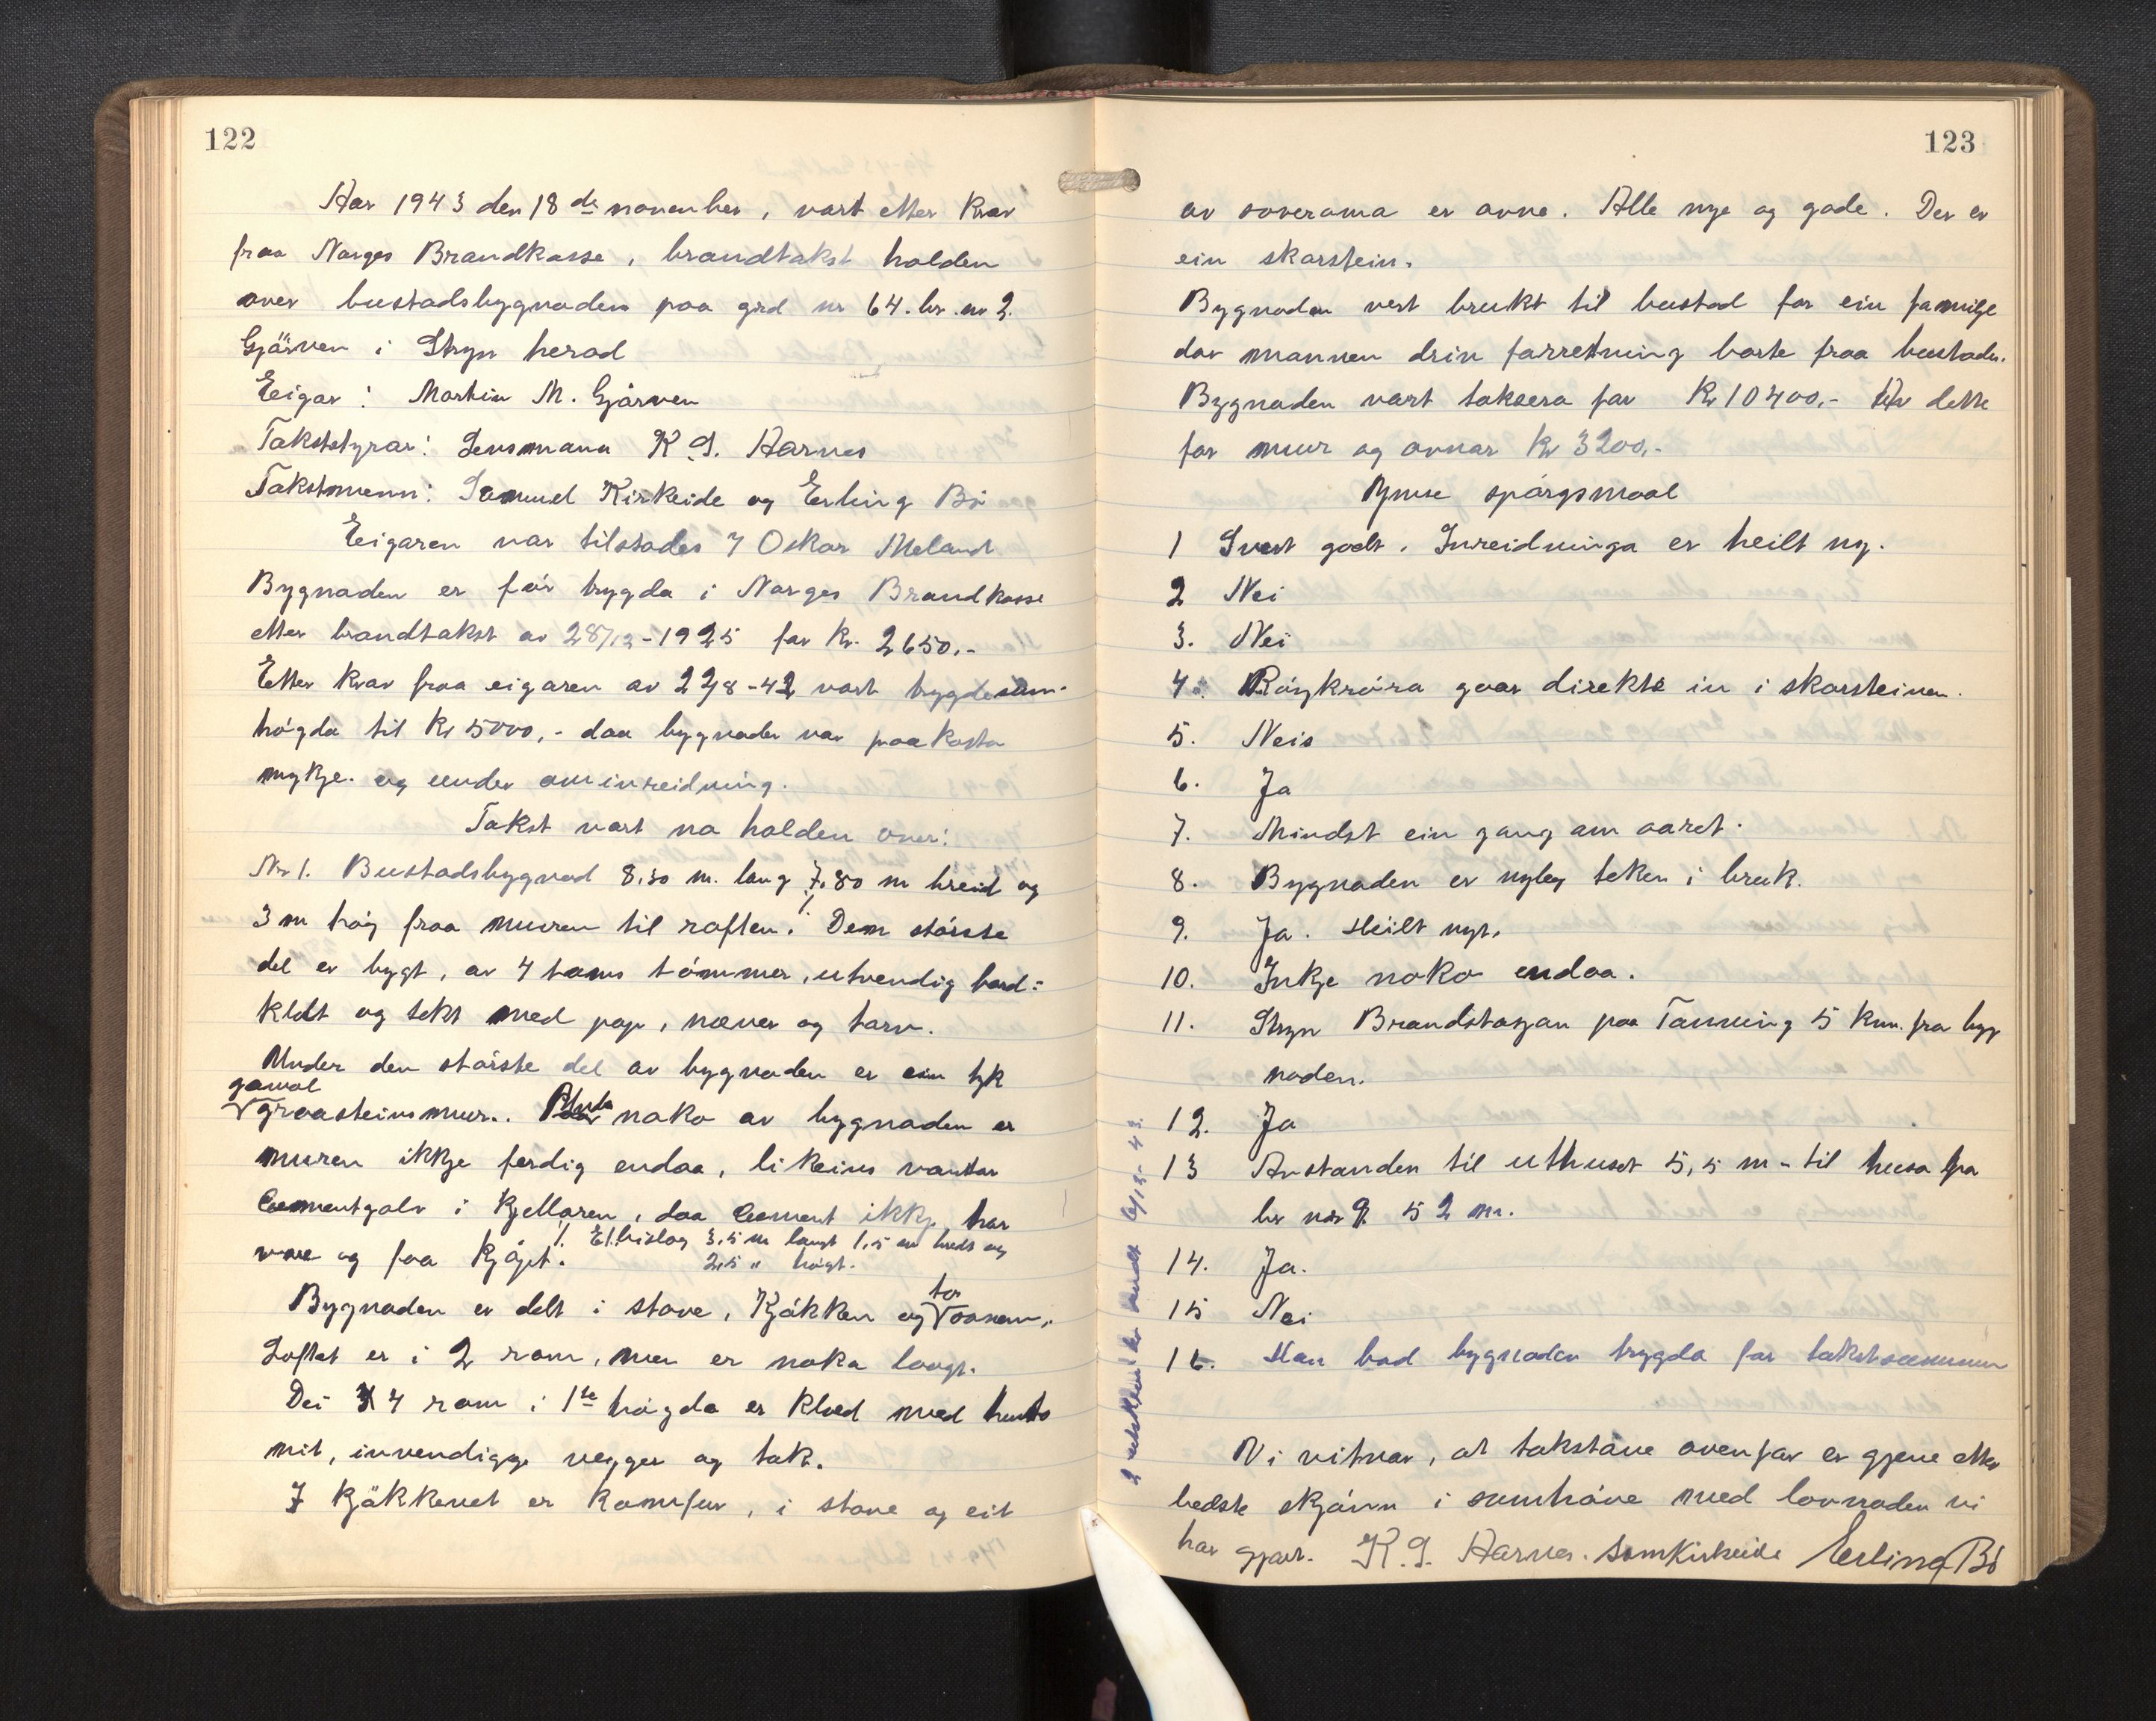 122
Aar 1943 den 18 de november, vart etter krav
fraa Norges Brandkasse, brandtakst halden
over bustadsbygnaden paa grd nr 64. br. nr 2.
Gjärven i Stryn herad
Eigar: Martin M. Gjårven
Takststyrar: Lensmann K. J. Aarnes
Takstmenn: Samuel Kirkeide og Erling Bö
Eigaren var tilstades og Oskar Meland
Bygnaden er før trygda i Norges Brandkasse
etter brandtakst av 28/12-1925 for Kr. 2650.-
Etter krav fraa eigaren av 22/8-42 vart trygdesum-
högda til Kr 5000,- daa bygnaden var paakosta
mykje. og under ominreidning.
Takst vart no halden over:
Nr 1. Bustadsbygnad 8,30 m. lang 7,80 m breid og
3 m høg fraa muren til raften. Dem største
del er bygt, av 4 toms tømmer, utvendig bord-
kledt og tekt med pap, næver og torv.
Under den største del av bygnaden er ein tyk
gamal
graasteinsmur.. noko av bygnaden er
muren ikkje ferdig endaa, likeins vantar
Cementgolv i kjellaren, daa Cement ikkje har
vore og faa kjøpt. ·/. Et bislag 3,5 m langt 1,5 m bredt og
2,5 " høgt.
Bygnaden er delt i stove, Kjökken og to soverom..
Loftet er i 2 rom, men er noko laagt.
Dei 4 rom i 1ste högda er klæd med hunto
nit, invendigge vegger og tak.
I kjökkenet er komfur, i stove og eit
123
av soveroma er ovne. Alle nye og gode. Der er
ein skorstein.
Bygnaden vert brukt til bustad for ein familje
dar mannen driv forretning borte fraa bustaden.
Bygnaden vart taksera for Kr 10400,- Av dette
for mur og ovnar Kr 3200,-
Ymse spørgsmaal
1 Svert godt. Inreidninga er heilt ny.
2 Nei
3. Nei
4. Røykröra gaar direkte in i skorsteinen.
5. Nei
6. Ja
7. Mindst ein gang om aaret.
8. Bygnaden er nyleg teken i bruk.
9. Ja. Heilt nyt.
10. Inkje noko endaa.
11. Stryn Brandstasjon paa Tonning 5 km. fra byg
naden.
12. Ja
13 Avstanden til uthuset 5,5 m - til husa paa
br nr 9 52 m.
14. Ja.
15 Nei
16. Han bad bygnaden trygda for takstsummen
Vi vitnar, at takståne ovenfor er gjeve etter
bedste skjönn i samhöve med lovnaden vi
har gjort. K. J. Aarnes. Sam Kirkeide Erling Bö